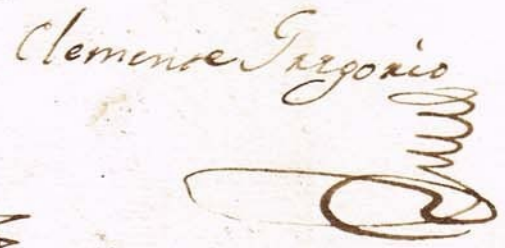 Clemense Gregorio